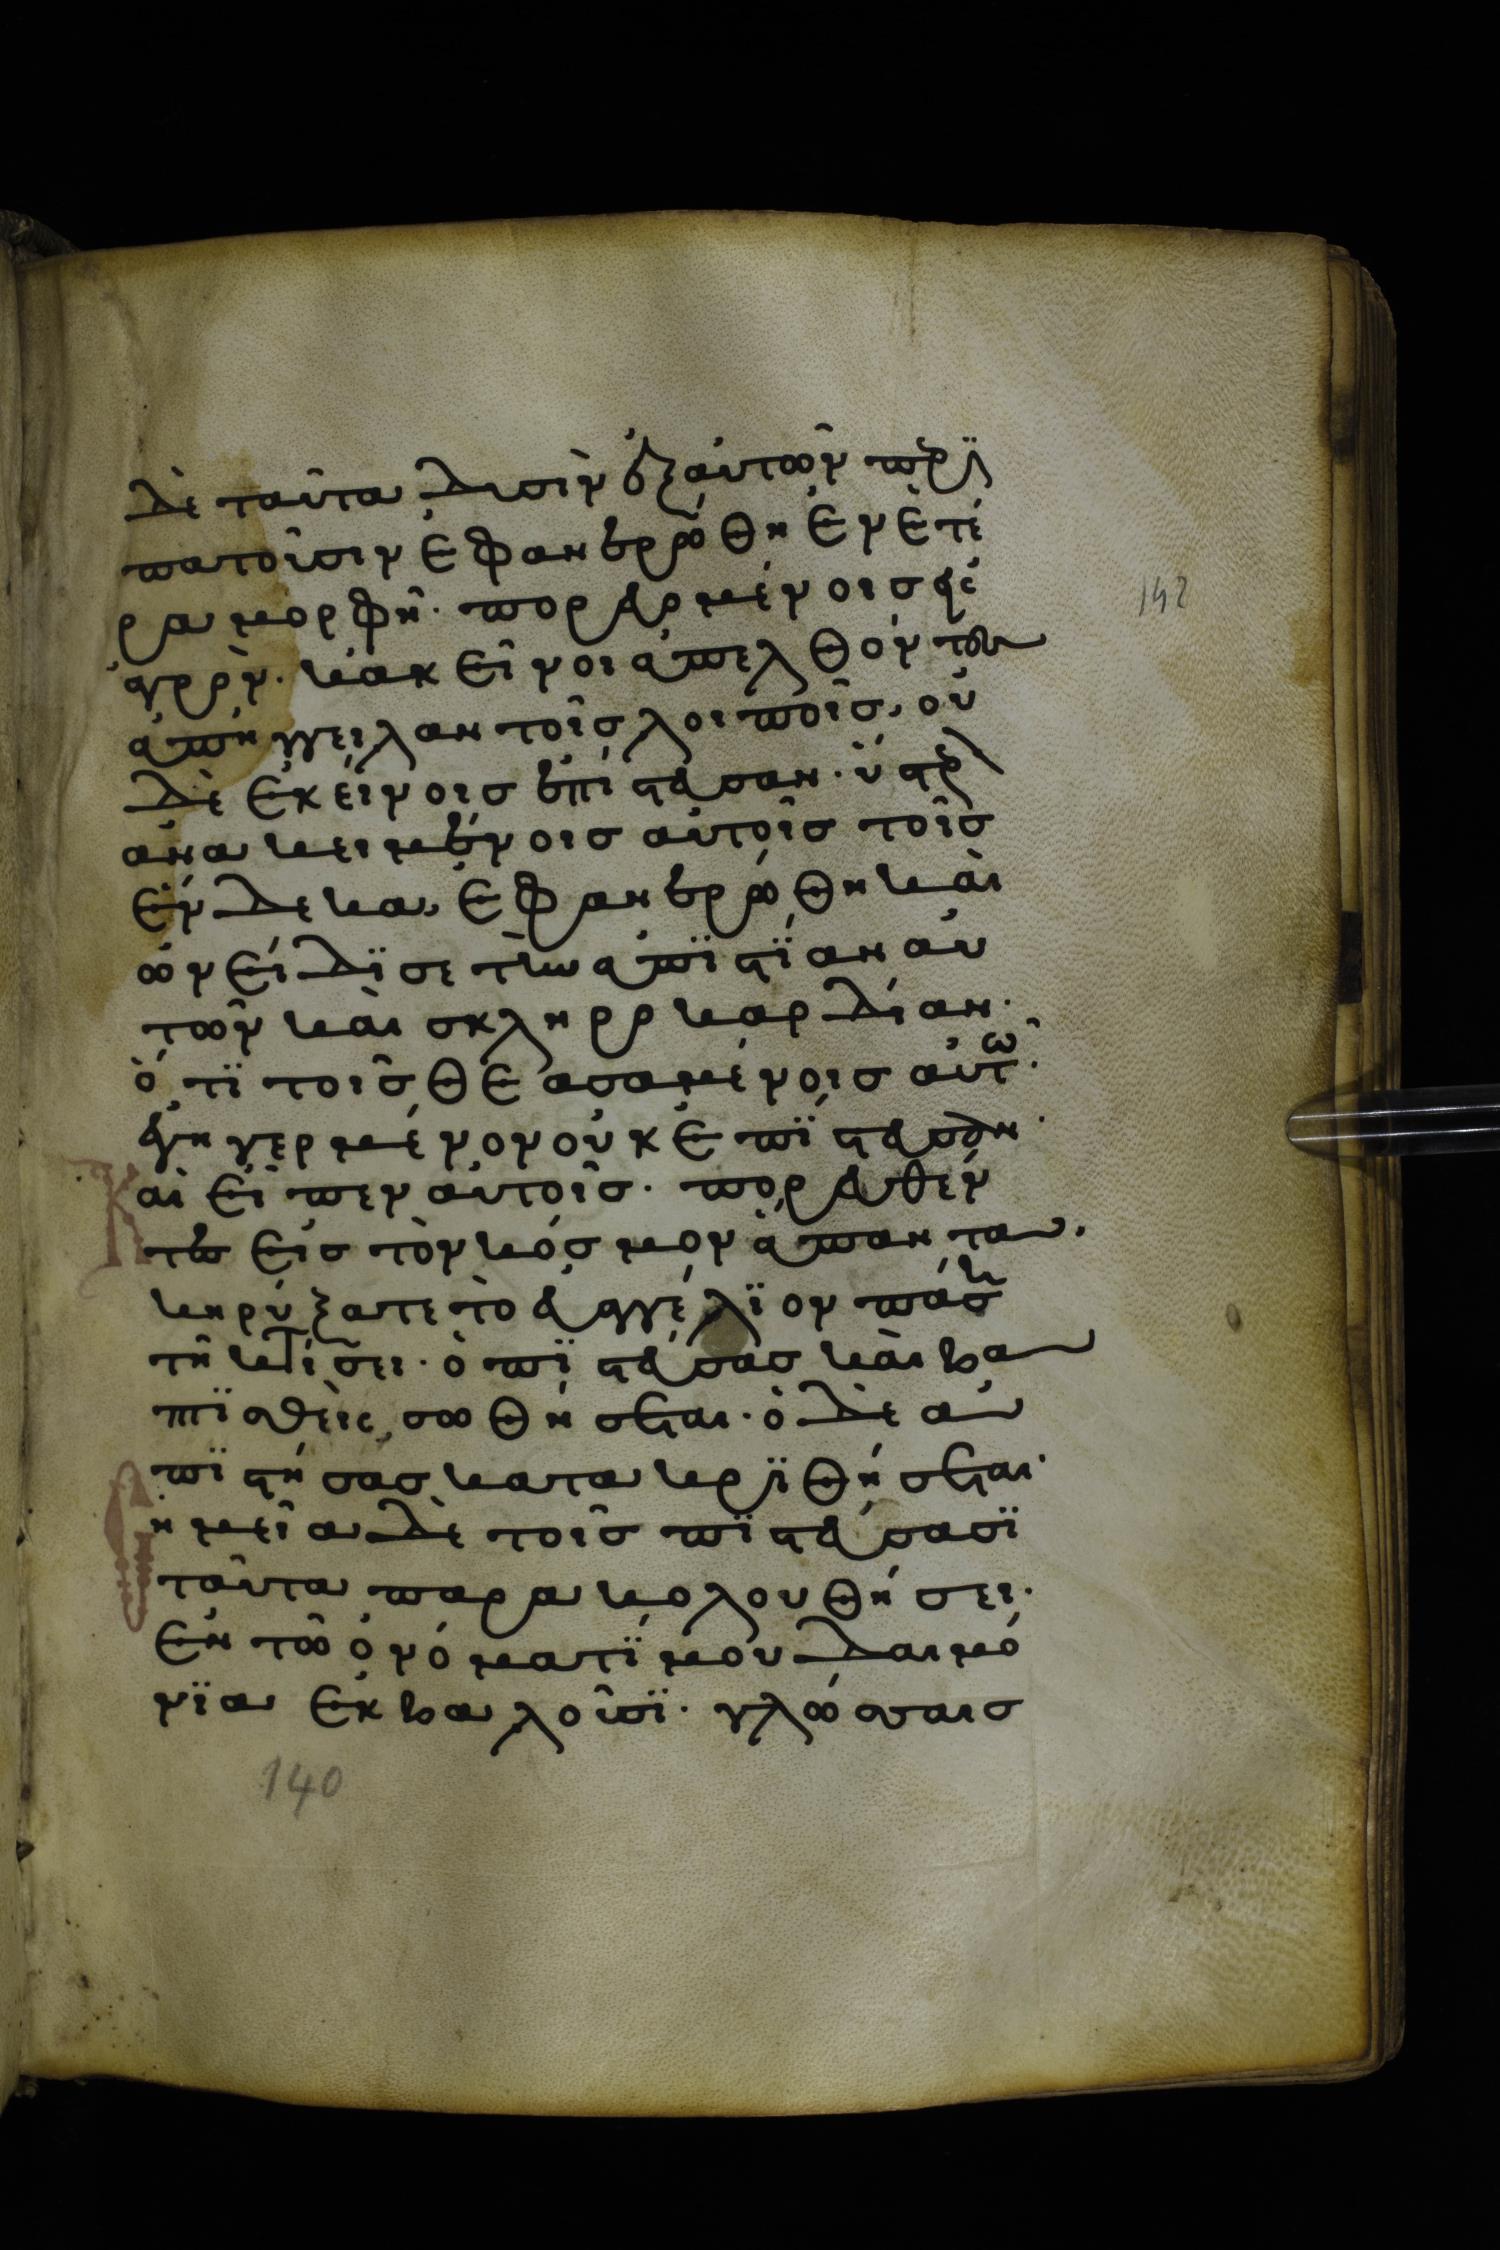 δὲ ταῦτα δυσὶν ἐξ αὐτῶν περι
πατοῦσιν ἐφανερώθη ἐν ἑτέ
ρα μορφῆ· πορευομένοις εἰς
ἀγρὸν· κακεῖνοι ἀπελθόντες
ἀπήγγειλαν τοῖς λοιποῖς, οὐ
δὲ ἐκείνοις ἐπίστευσαν· ὕστερον
ἀνακειμένοις αὐτοῖς τοῖς
ἕνδεκα, ἐφανερώθη καὶ
ὠνείδϊσε τὴν ἀπϊστϊαν αὐ
τῶν καὶ σκληροκαρδίαν·
ὅτϊ τοῖς θεασαμένοις αὐτὸ̑ν
ἐγηγερμένον οὐκ ἐπϊστευσαν·
Καὶ εἶπεν αὐτοῖς· πορευθέν
τες εἰς τὸν κόσμον ἅπαντα.
κηρύξατε τὸ εὐαγγέλϊον πάση
τῆ κτίσει· ὁ πϊστεύσας καὶ βα
πτϊσθεὶς, σωθήσεται· ὁ δὲ ἀ
πϊστήσας κατακρϊθήσεται·
Σημεῖα δὲ τοῖς πϊστεύσασϊ
ταῦτα παρακολουθήσει·
ἐν τῶ ὀνόματϊ μου δαιμό
νϊα ἐκβαλοῦσϊ· γλώσσαις
142
140